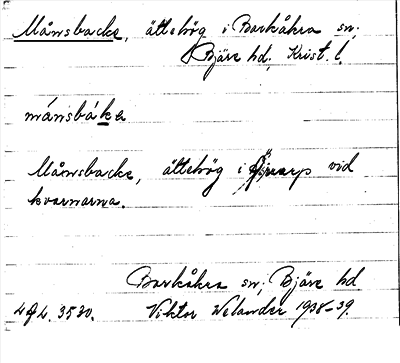 Månsbacke, ättehög i Barkåkra sn;
Bjäre hd; Krist. l.
månsbáke
Månsbacke, ättehög i vid
kvarnarna.
Barkåkra sn; Bjäre hd
Viktor Welander 1938-39.
3530.